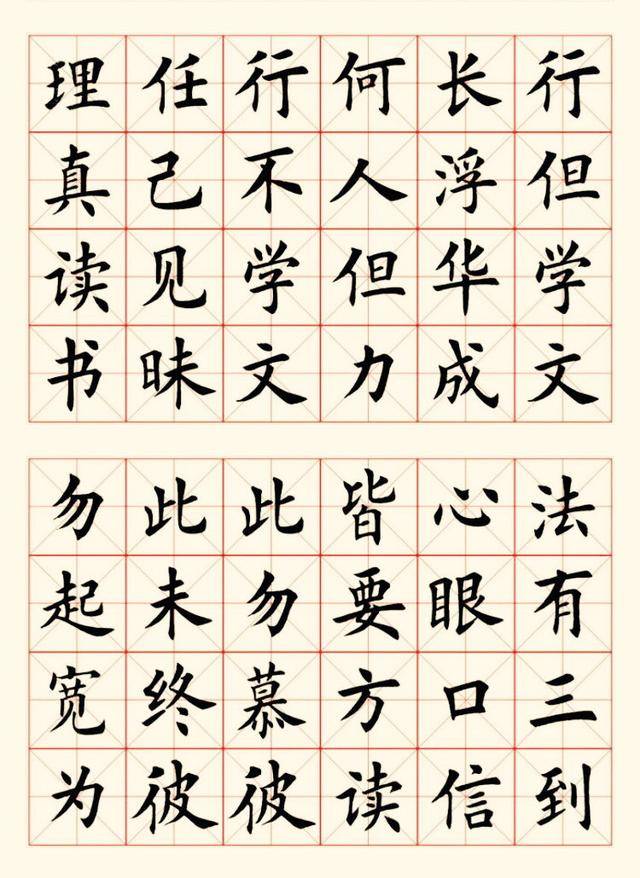 行但学文
长浮华成
何人但力
行不学文
任己见昧
理真读书
法有三到
心眼口信
皆要方读
此勿慕彼
此未终彼
勿起宽为